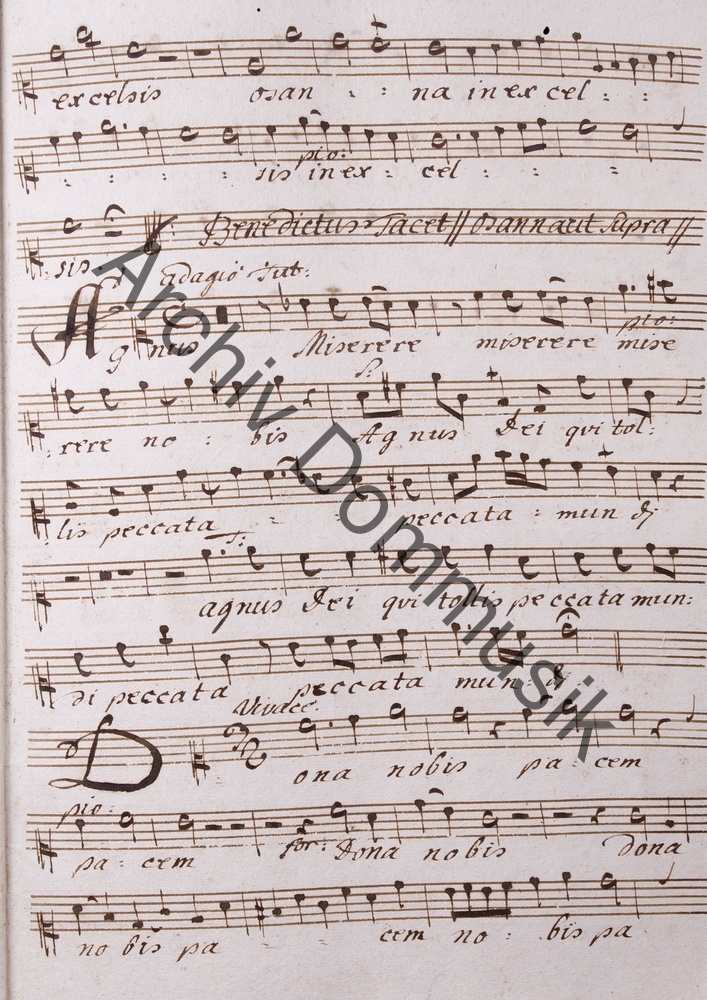 excelsis osan : : na in ex cel : :
pio:
: : : : sis in ex : cel : : :
: sis Benedictus Tacet // Osanna ut supra //
Adagio Tut:
pio:
Agnus Miserere miserere mise
: rere no : bis Agnus Dei qui tol:
lis peccata : : peccata : mun di
agnus Dei qui tollis peccata mun:
di peccata peccata mun : di
Vivace.
Dona nobis pa : cem
pio: for:
pa : cem Dona nobis dona
no bis pa : : cem no : bis pa
Archiv Dommusik